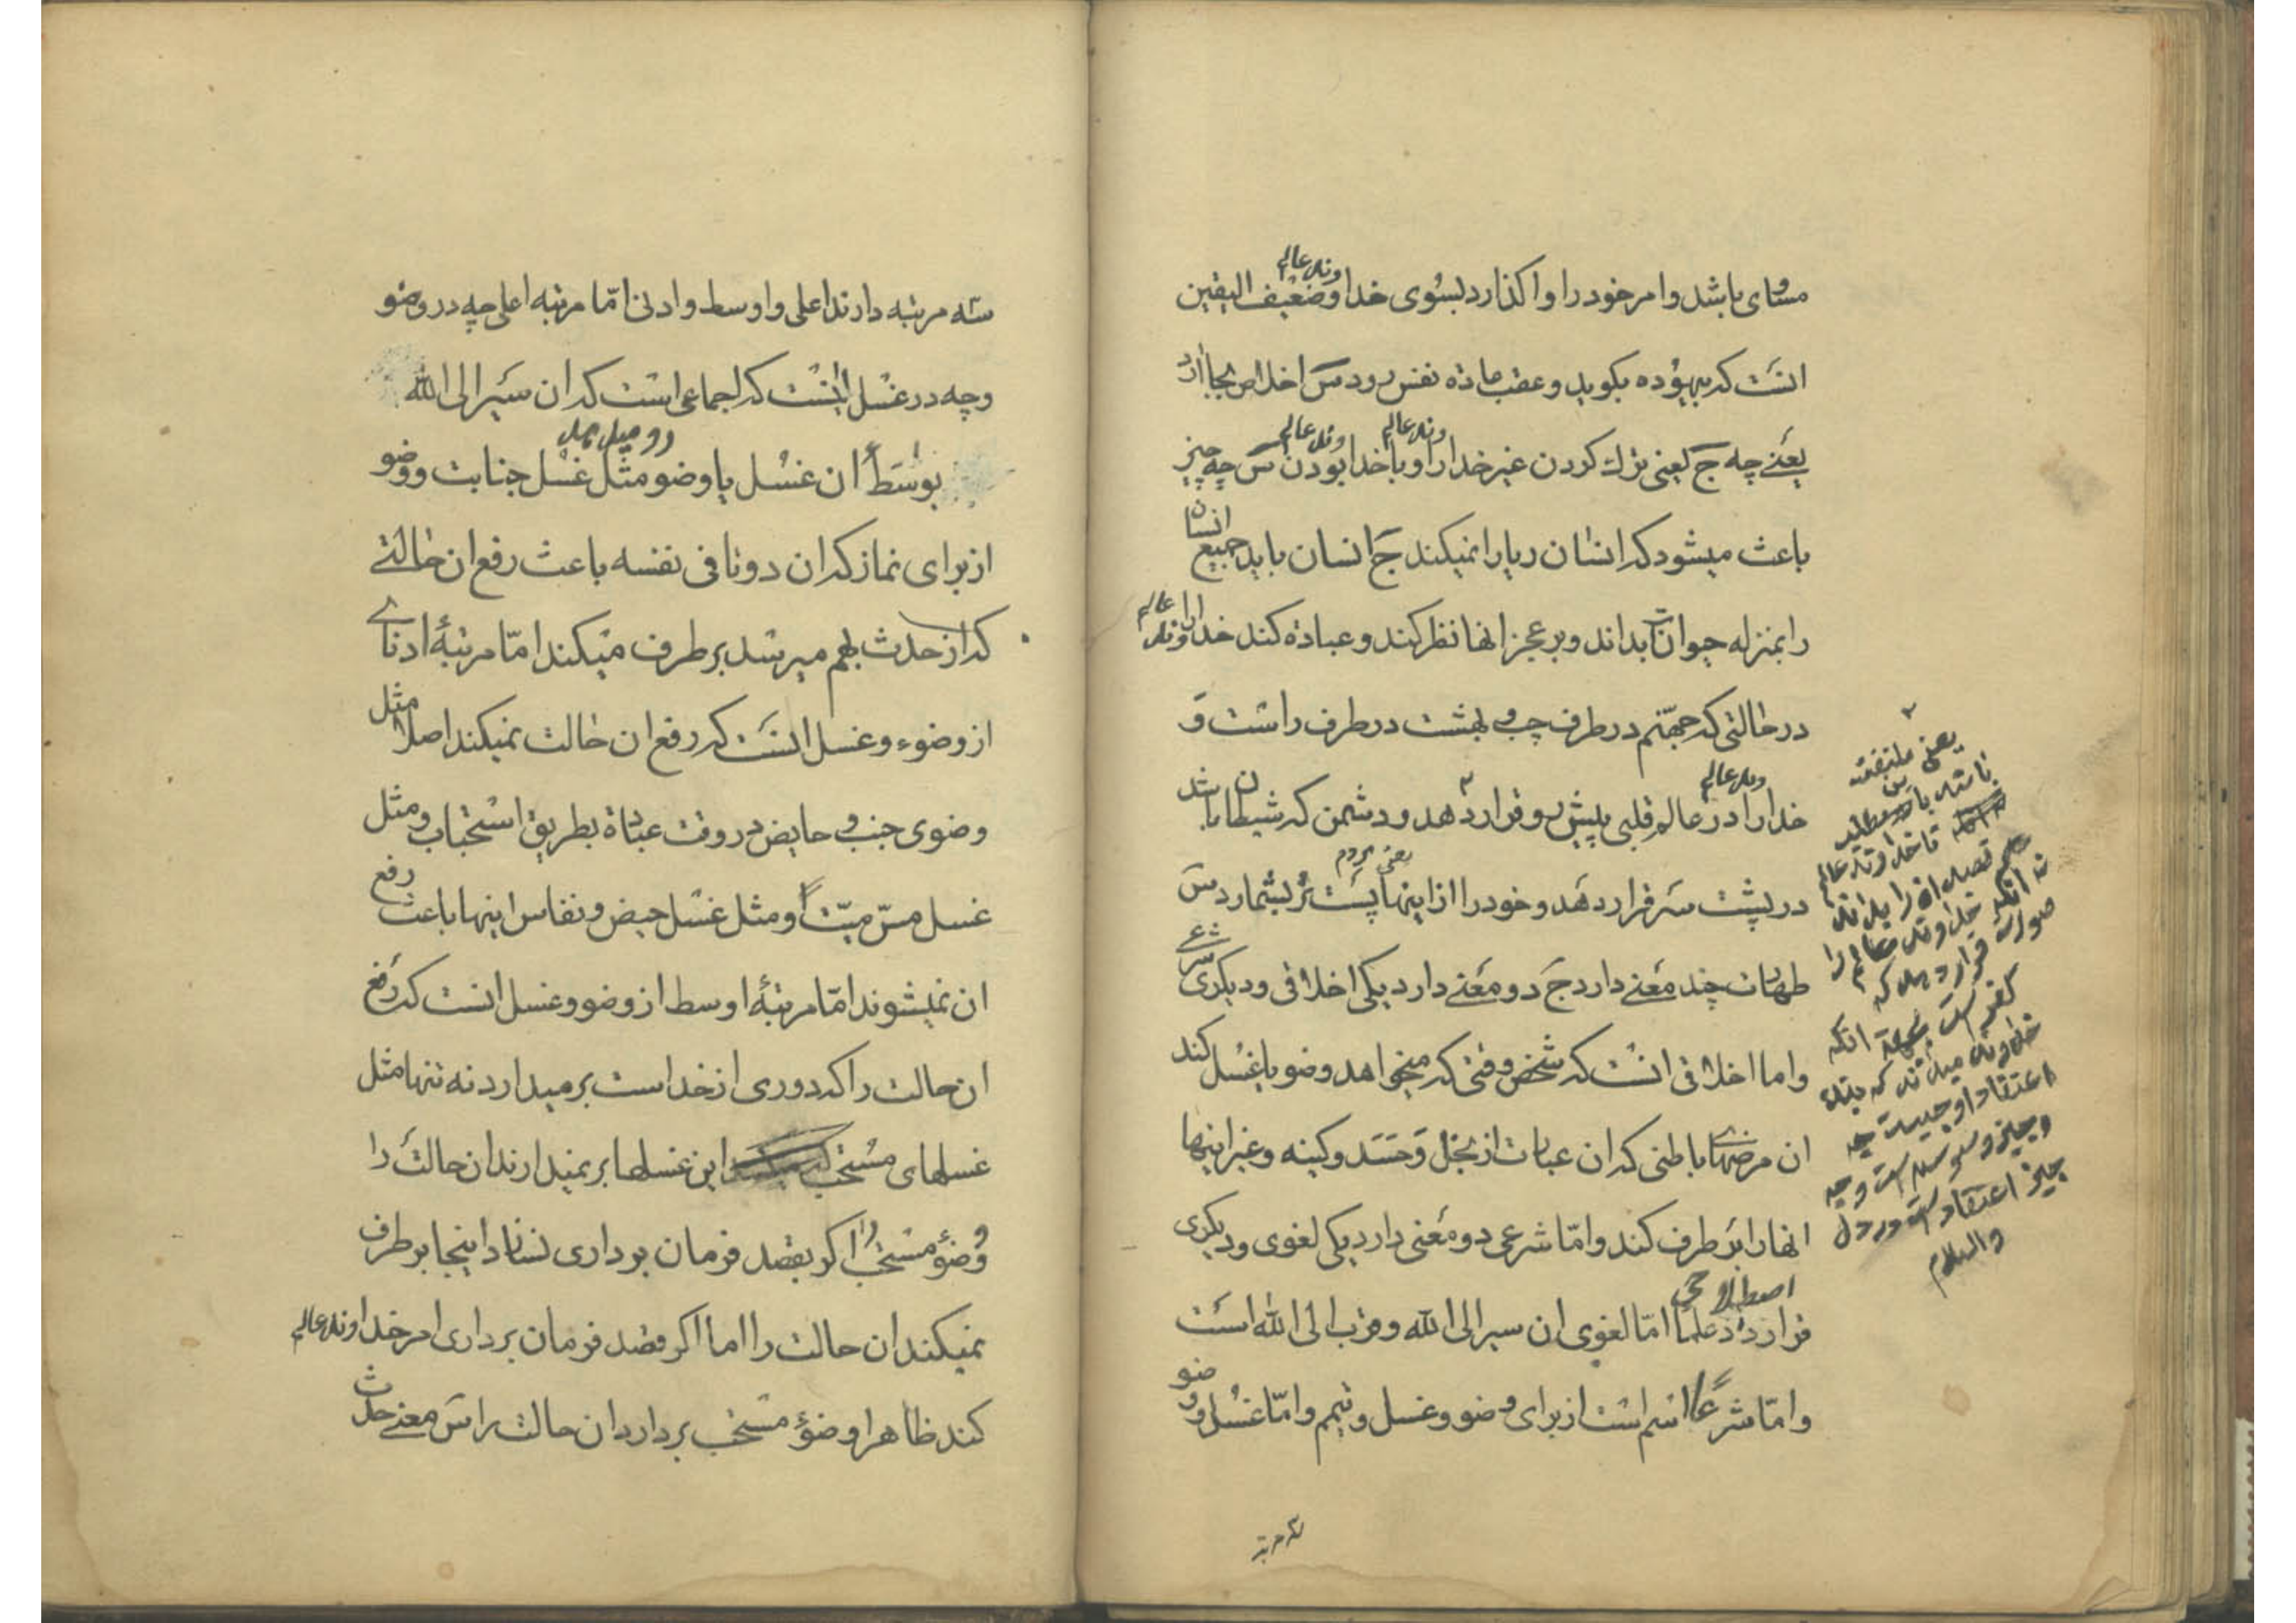 مساوی باشد و امر خود را واکذارد بسوی خداوند عالم و ضعیف الیقین
انست که بیهوده بکوید و عقب ماده نفس رود س اخلاص بجا ارد
یعنی چه ج یعنی ترک کردن غیر خداوند عالم را و با خداوند عالم بودن س چه چیز
باعث میشود که انسان ریا را نمیکند ج انسان باید جمیع انسان
را بمنزله حیوانات بداند و بر عجز انها نظر کند و عباده کند خداوند عالم را
در حالتی که جهنم در طرف چپ و بهشت در طرف راست و
خداوند عالم را در عالم قلبی پیش رو قرار دهد و دشمن که شیطان باشد
در پشت سر قرار دهد و خود را از اینها یعنی مردم پست تر بشمارد س
طهارت چند معنی دارد ج دو معنی دارد یکی اخلاقی و دیکری شرعی
و اما اخلاقی انست که شخص وقتی که میخواهد وضو یا غسل کند
ان مرضهای باطنی که ان عبارت از بخل و حسد و کینه و غیر اینها
انها را بر طرف کند و امّا شرعی دو معنی دارد یکی لغوی و دیکری
اصطلاحی
قرارداد علما امّا لغوی ان سیر الی الله و قرب الی الله است
و امّا شرعاً اسم است از برای وضو و غسل و تیمم و امّا غسل و وضو
یعنی ملتفت
باشد باین مطلب
تا خداوند عالم
قصد او را بداند
نه انکه خداوند عالم را
صورت قرار دهد که
کفر است بجهة انکه
خداوند میداند که بنده
اعتقاد او چیست چه
چیز اعتقاد است در دل
والسلام
سه مرتبه
سه مرتبه دارند اعلی و اوسط و ادنی امّا مرتبه اعلی چه در وضو
و چه در غسل اینست که اجماعی است که ان سیر الی الله
رو میدهد
بوسط ان غسل یا وضو مثل غسل جنابت و وضو
از برای نماز که ان دوتا فی نفسه باعث رفع ان حالتی
که از حدث بهم میرسد بر طرف میکند امّا مرتبهٔ ادنای
از وضوء و غسل انست که رفع ان حالت نمیکند اصلا مثل
وضوی جنب و حایض در وقت عباده بطریق استحباب و مثل
غسل مسّ میّت و مثل غسل حیض و نفاس اینها باعث رفع
ان نمیشوند امّا مرتبهٔ اوسط از وضو و غسل انست که رفع
ان حالت را که دوری از خداست بر میدارد نه تنها مثل
غسلهای مستحب این غسلها بر نمیدارند ان حالت را
وضوٴ مستحب را اکر بقصد فرمان برداری نشد اینجا بر طرف
نمیکند ان حالت را اما اکر قصد فرمان برداری امر خداوند عالم
کند ظاهرا وضوٴ مستحب بردارد ان حالت را س معنی حدث